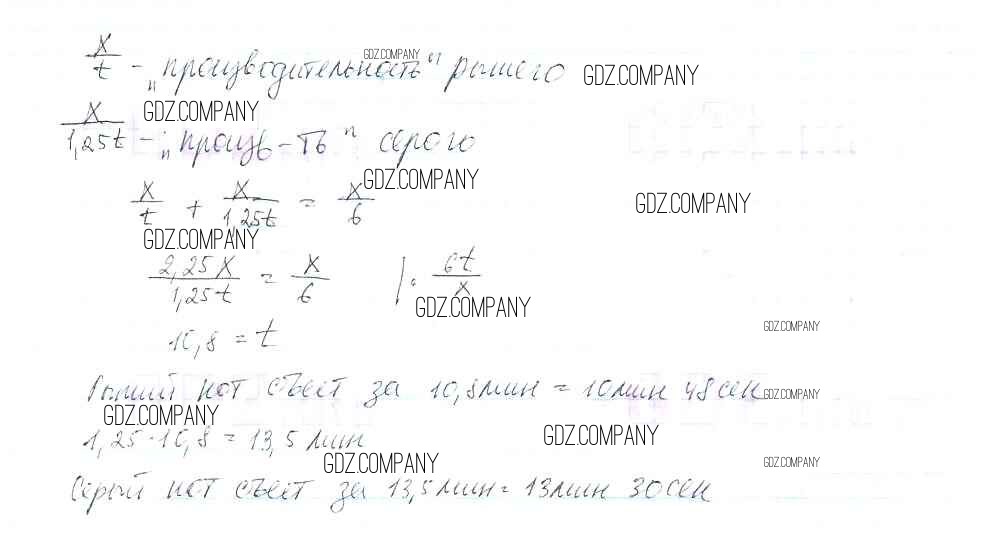 x/t - „производительность" рыжего
GDZ.COMPANY
GDZ.COMPANY
GDZ.COMPANY
x/1,25t - „произв-ть" серого
GDZ.COMPANY
x/t + x/1,25t = x/6
GDZ.COMPANY
GDZ.COMPANY
2,25x/1,25t = x/6 | · 6t/x
GDZ.COMPANY
GDZ.COMPANY
10,8 = t
Рыжий кот съест за 10,8 мин = 10 мин 48 сек
GDZ.COMPANY
GDZ.COMPANY
1,25·10,8 = 13,5 мин
GDZ.COMPANY
GDZ.COMPANY
GDZ.COMPANY
Серый кот съест за 13,5 мин = 13 мин 30 сек